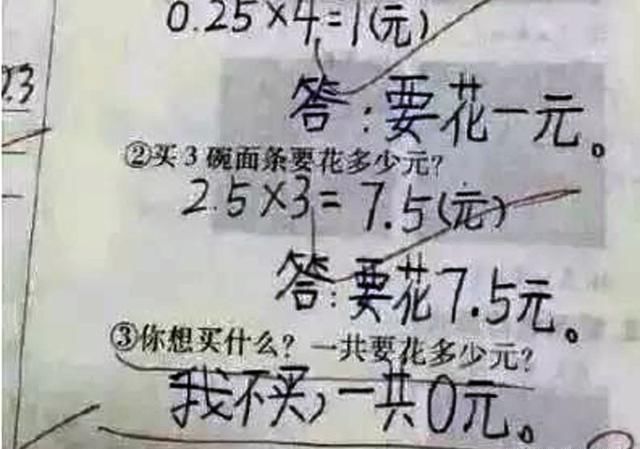 0.25×4=1(元)
答:要花一元。
②买3碗面条要花多少元?
2.5×3=7.5(元)
答:要花7.5元。
③你想买什么?一共要花多少元?
我不买,一共0元。